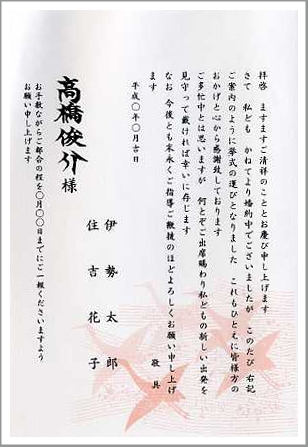 拝啓　ますますご清祥のこととお慶び申し上げます
さて　私ども　かねてより婚約中でございましたが　このたび　右記
ご案内のように挙式の運びとなりました　これもひとえに皆様方の
おかげと心から感謝致しております
ご多忙中とは思いますが　何とぞご出席賜わり私どもの新しい出発を
見守って戴ければ幸いに存じます
なお　今後とも末永くご指導ご鞭撻のほどよろしくお願い申し上げ
ます
敬具
平成〇年〇月吉日
伊勢太郎
住吉花子
高橋俊介様
お手数ながらご都合の程を〇月〇〇日までにご一報くださいますよう
お願い申し上げます